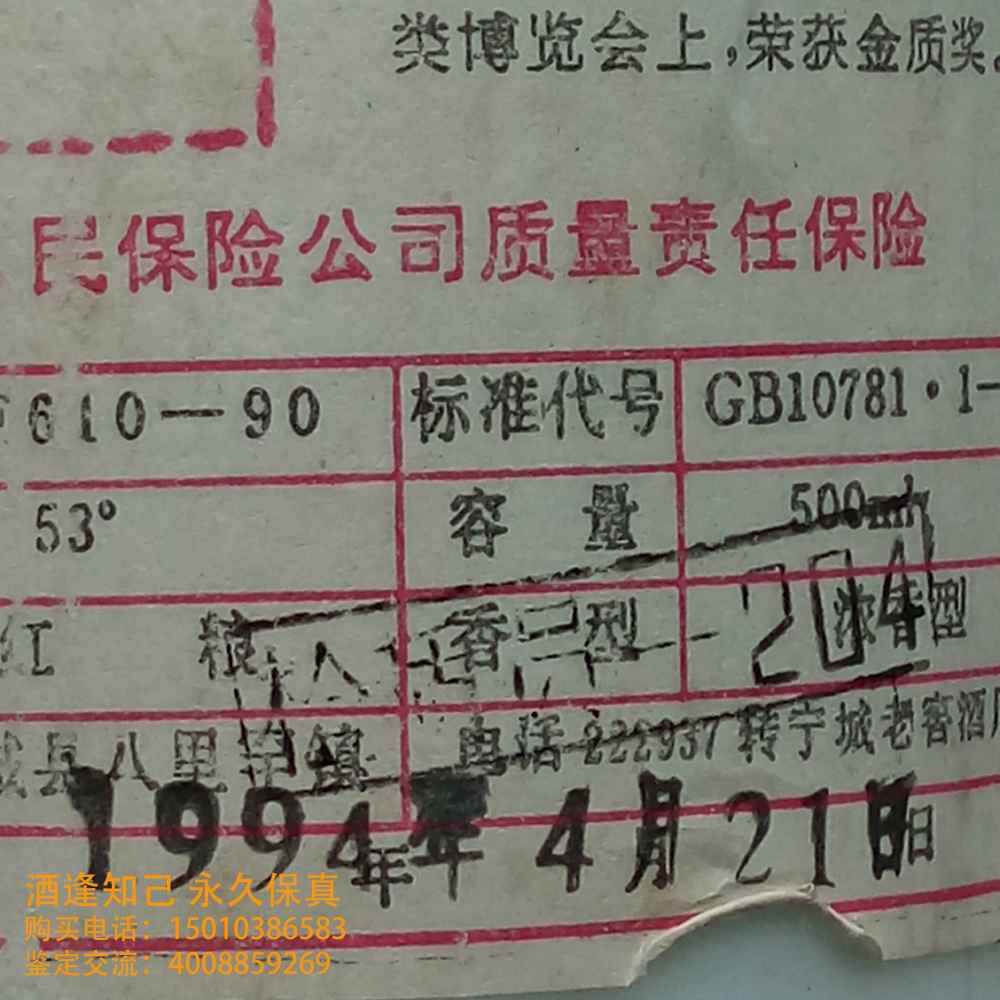 类博览会上,荣获金质奖。
民保险公司质量责任保险
610—90 标准代号 GB10781·1-
53° 容 量 500ml
粮 香 型 浓香型
204
县八里罕镇 电话 222937 转宁城老窖酒
1994年年 4月21日日
酒逢知己 永久保真
购买电话：15010386583
鉴定交流：4008859269